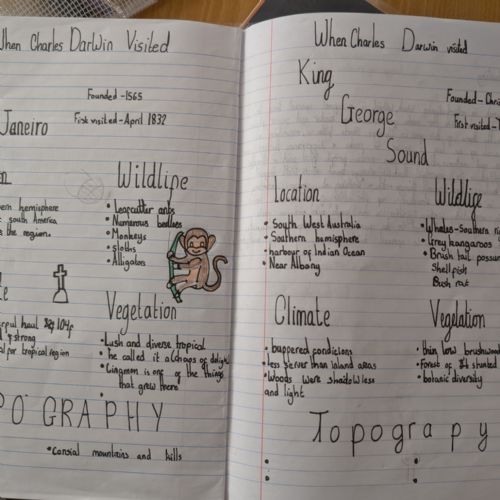 When Charles Darwin Visited
Founded-1565
First visited-April 1832
Janeiro
Wildlife
hemisphere
south America
the region.
• Leafcutter ants
• Numerous beetles
• Monkeys
• sloths
• Alligators
Vegetation
haul
strong
for tropical region
• Lush and diverse tropical
• he called it a chaos of delight
• Cinnamon is one of the things
that grew there
OGRAPHY
• Conical mountains and hills
When Charles Darwin visited
King
George
Sound
Founded-
First visited-
Location
• South West Australia
• Southern hemisphere
• harbour of Indian Ocean
• Near Albany
Wildlige
• Whales-Southern
• Grey kangaroos
• Brush tail possum
Shellfish
Bush rat
Climate
• buppered conditions
• less server than inland areas
• Woods were shadowless
and light
Vegelation
• thin, low brushwood
• Forest of stunted
• botanic diversity
Topograpy